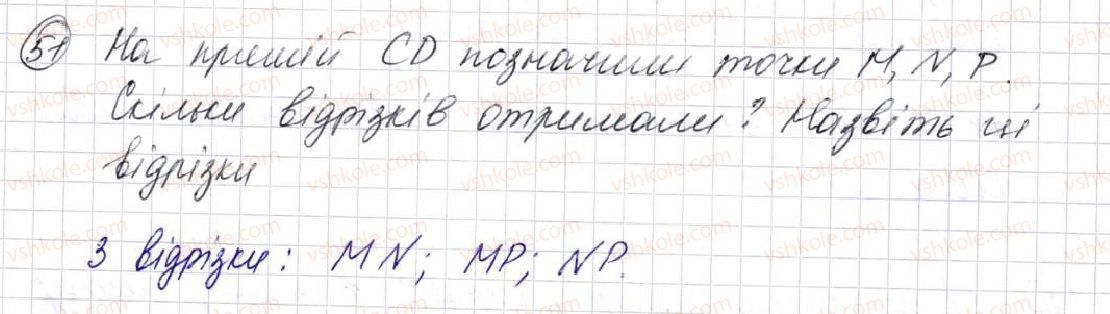 51 На прямій CD позначили точки M, N, P.
Скільки відрізків отримали? Назвіть ці
відрізки
3 відрізки: MN; MP; NP.